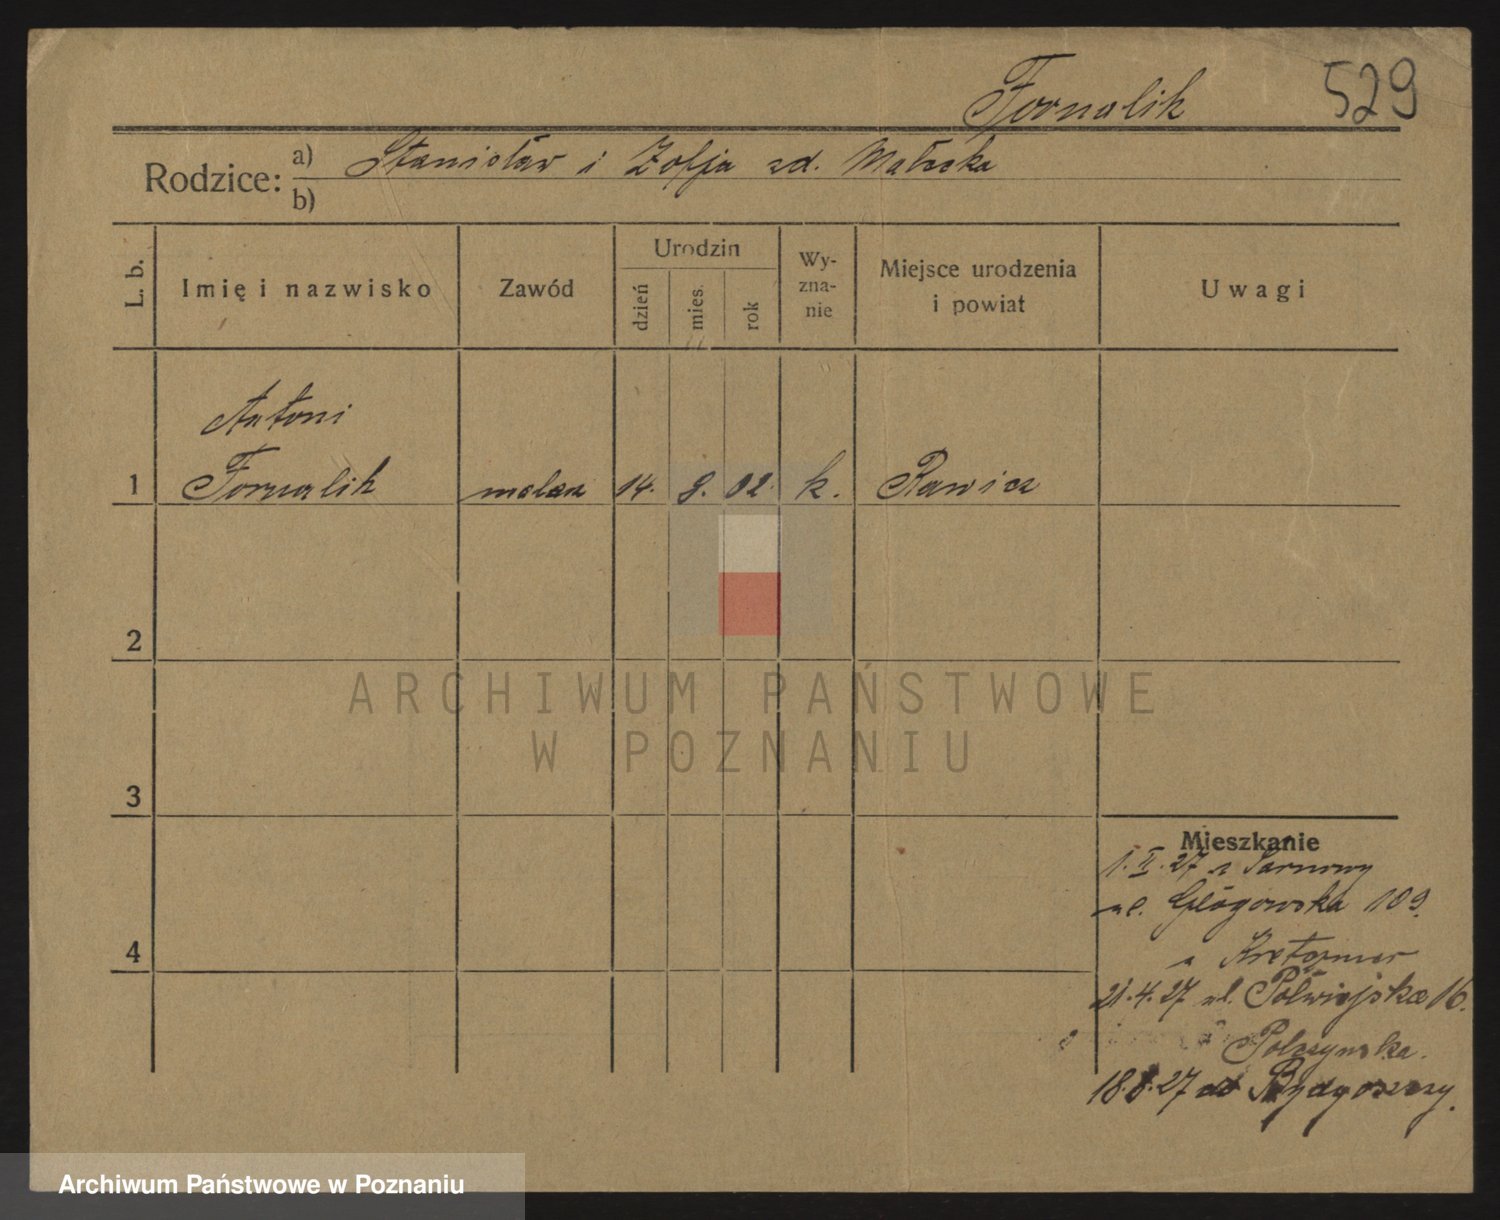 Fornalik 529
Rodzice: a) Stanisław i Zofja zd. Małecka
b)
L. b. Imię i nazwisko Zawód Urodzin dzień mies. rok Wy-zna-nie Miejsce urodzenia i powiat Uwagi
Antoni
1 Fornalik malarz 14. 8. 02. k. Rawicz
2
ARCHIWUM PAŃSTWOWE
W POZNANIU
3
Mieszkanie
1.II.27 z Sarnowy
ul. Głogowska 109.
4
21.4.27 ul. Półwiejska 16.
18.8.27 do Bydgoszczy.
Archiwum Państwowe w Poznaniu